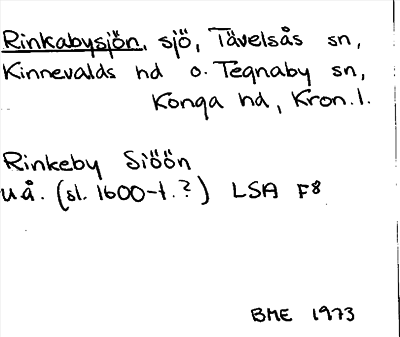 Rinkabysjön, sjö, Tävelsås sn,
Kinnevalds hd o. Tegnaby sn,
Konga hd, Kron.l.
Rinkeby Siöön
u.å. (sl. 1600-t.?) LSA F8
BME 1973